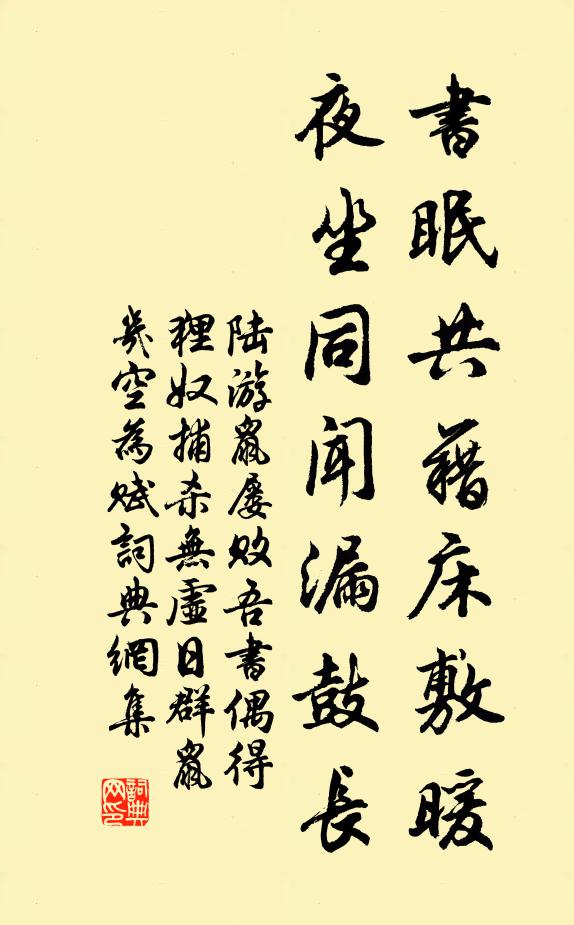 書眠共藉床敷暖
夜坐同聞漏鼓長
陸游鼠屢敗吾書偶得
狸奴捕殺無虛日群鼠
幾空為賦詞典網集
詞典
网印